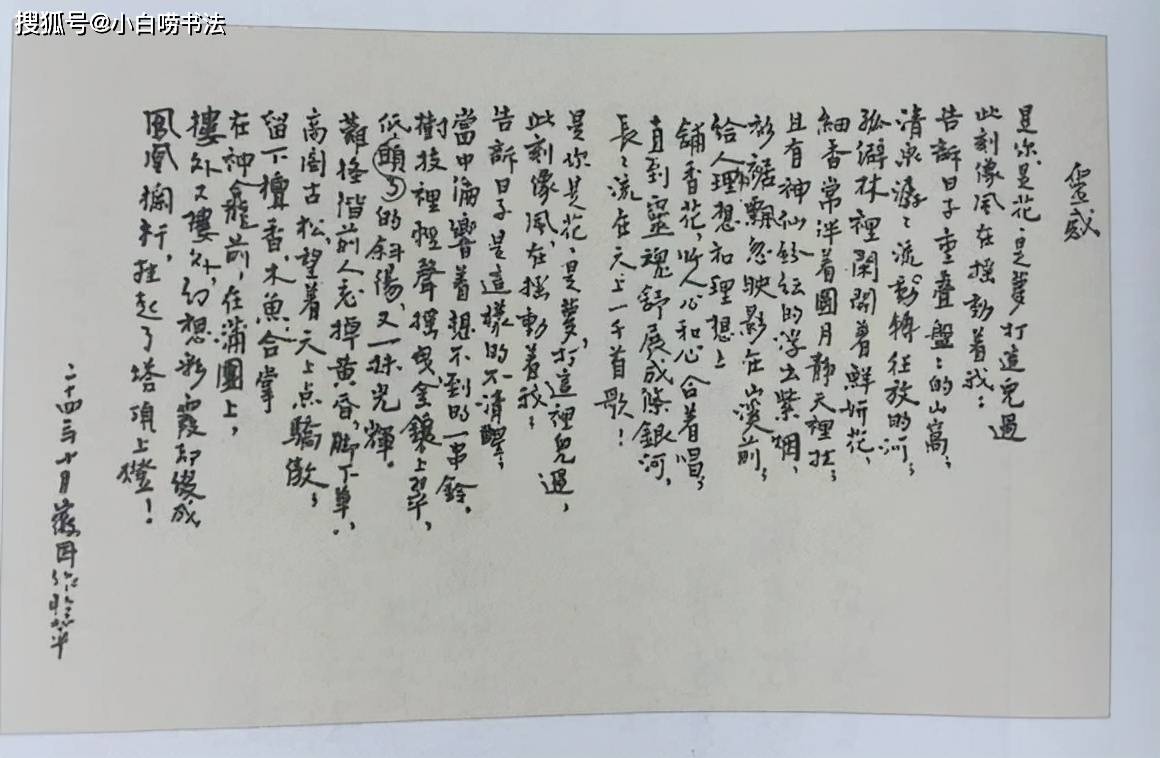 搜狐号@小白唠书法
靈感
是你是花是夢打這兒過
此刻像風在搖動着我；
告訴日子重疊盤〻的山窩；
清泉潺〻流動轉狂放的河；
孤僻林裡閑開着鮮妍花，
細香常伴着圓月靜天裡挂；
且有神仙紛紜的浮出紫烟，
衫裾飄忽映影在山溪前；
給人的理想和理想上
舖香花，叫人心和心合着唱；
直到靈魂舒展成條銀河，
長〻流在天上一千首歌！
是你是花，是夢，打這裡兒過，
此刻像風，在搖動着我；
告訴日子是這樣的不清醒；
當中偏響着想不到的一串鈴。
樹枝裡輕聲搖曳，金鑲上翠，
低頭了的斜陽，又一抹光輝。
難怪階前人忘掉黃昏，脚下草，
高閣古松，望着天上点驕傲；
留下檀香，木魚，合掌
在神龕前，在蒲團上，
樓外又樓外，幻想彩霞却綴成
鳳凰欄杆，挂起了塔頂上燈！
二十四年十月徽因作於北平